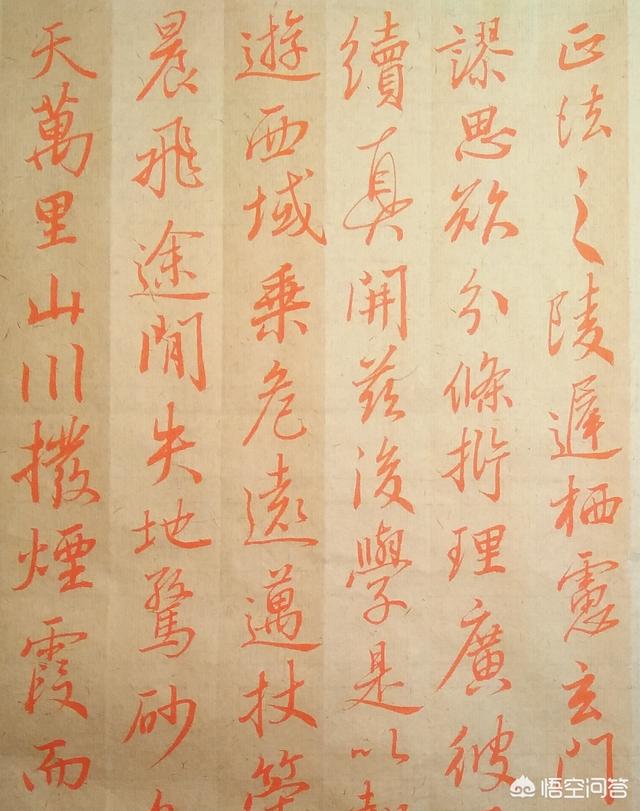 正法之陵遲栖慮玄門
謬思欲分條析理廣彼
續真開茲後學是以
遊西域乘危遠邁杖
晨飛途閒失地驚砂
天萬里山川撥煙霞而
悟空问答